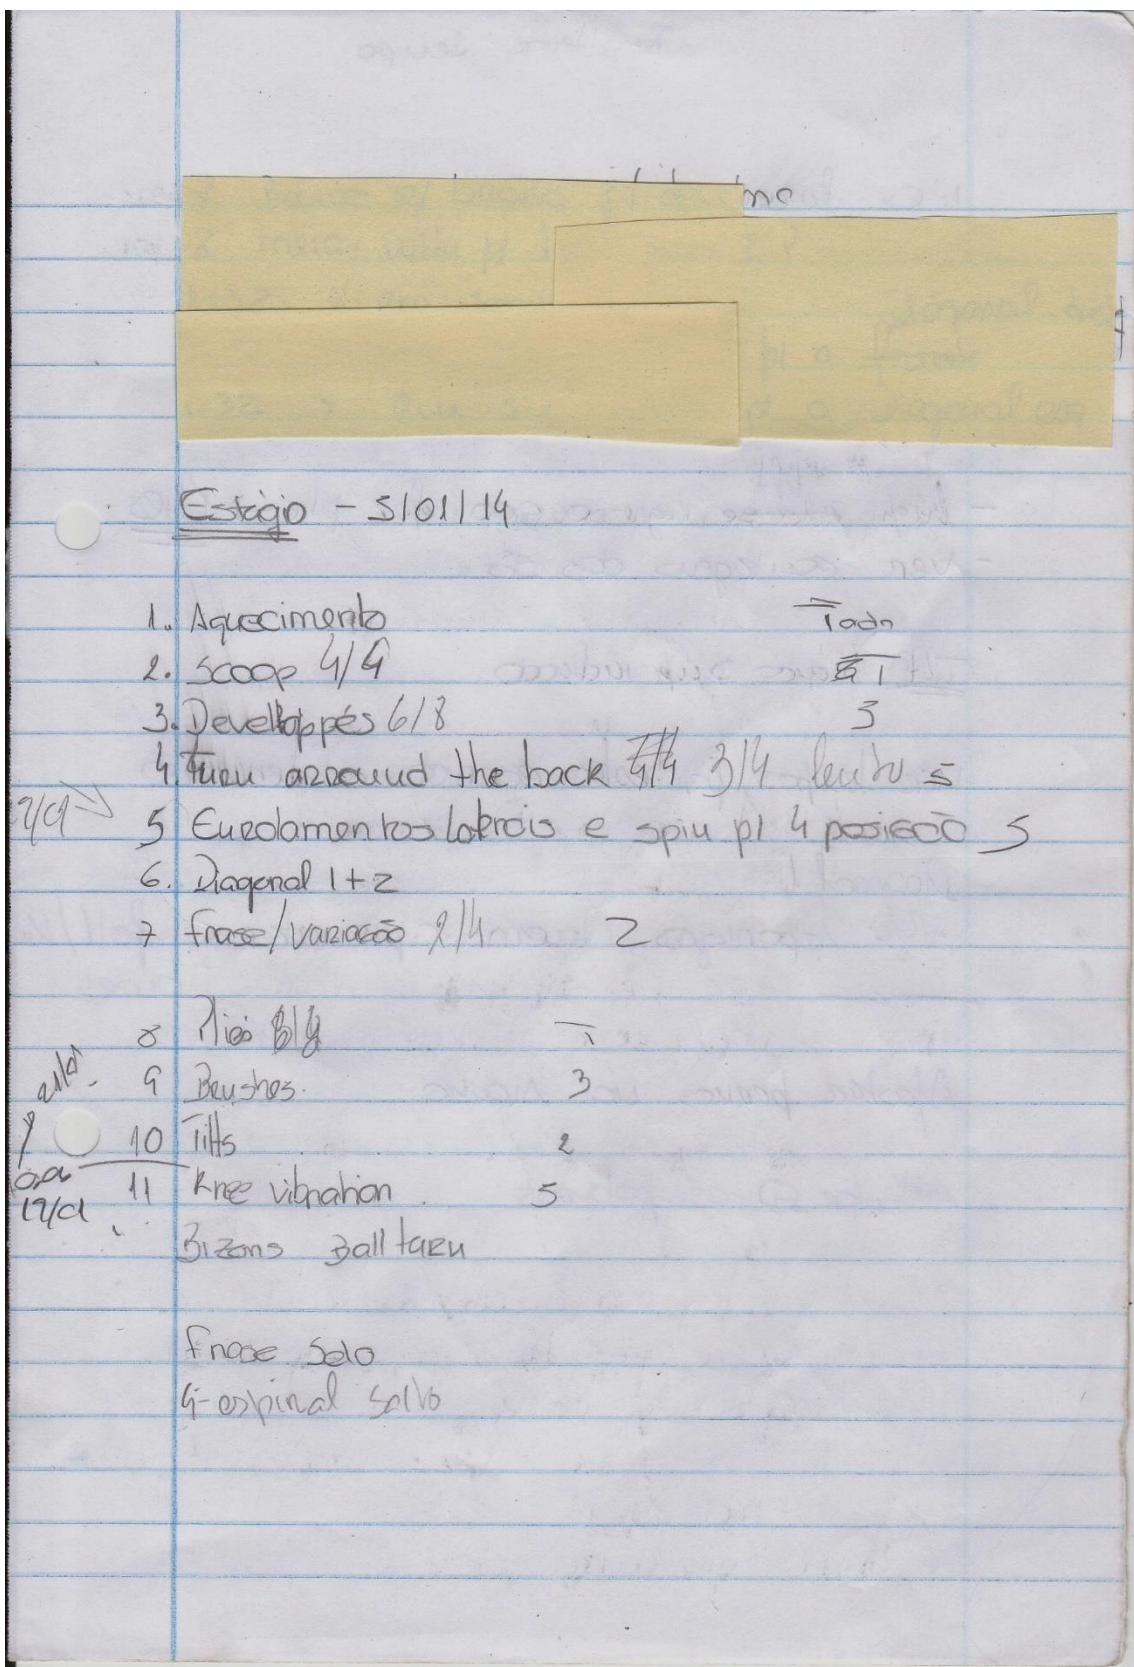 Estágio - 5/01/14
1. Aquecimento Todn
2. Scoop 4/4 1
3. Developpés 6/8 3
4. Turn arround the back 3/4 lento 5
5 Enrolamentos laterais e spin p/ 4 posição 5
6. Diagonal 1+2
7 frase/variação 2/4 2
8 Pliés
9 Brushes. 3
10 Tilts 2
11 Knee vibration 5
Bizons Ball turn
frase solo
4-espinal salto